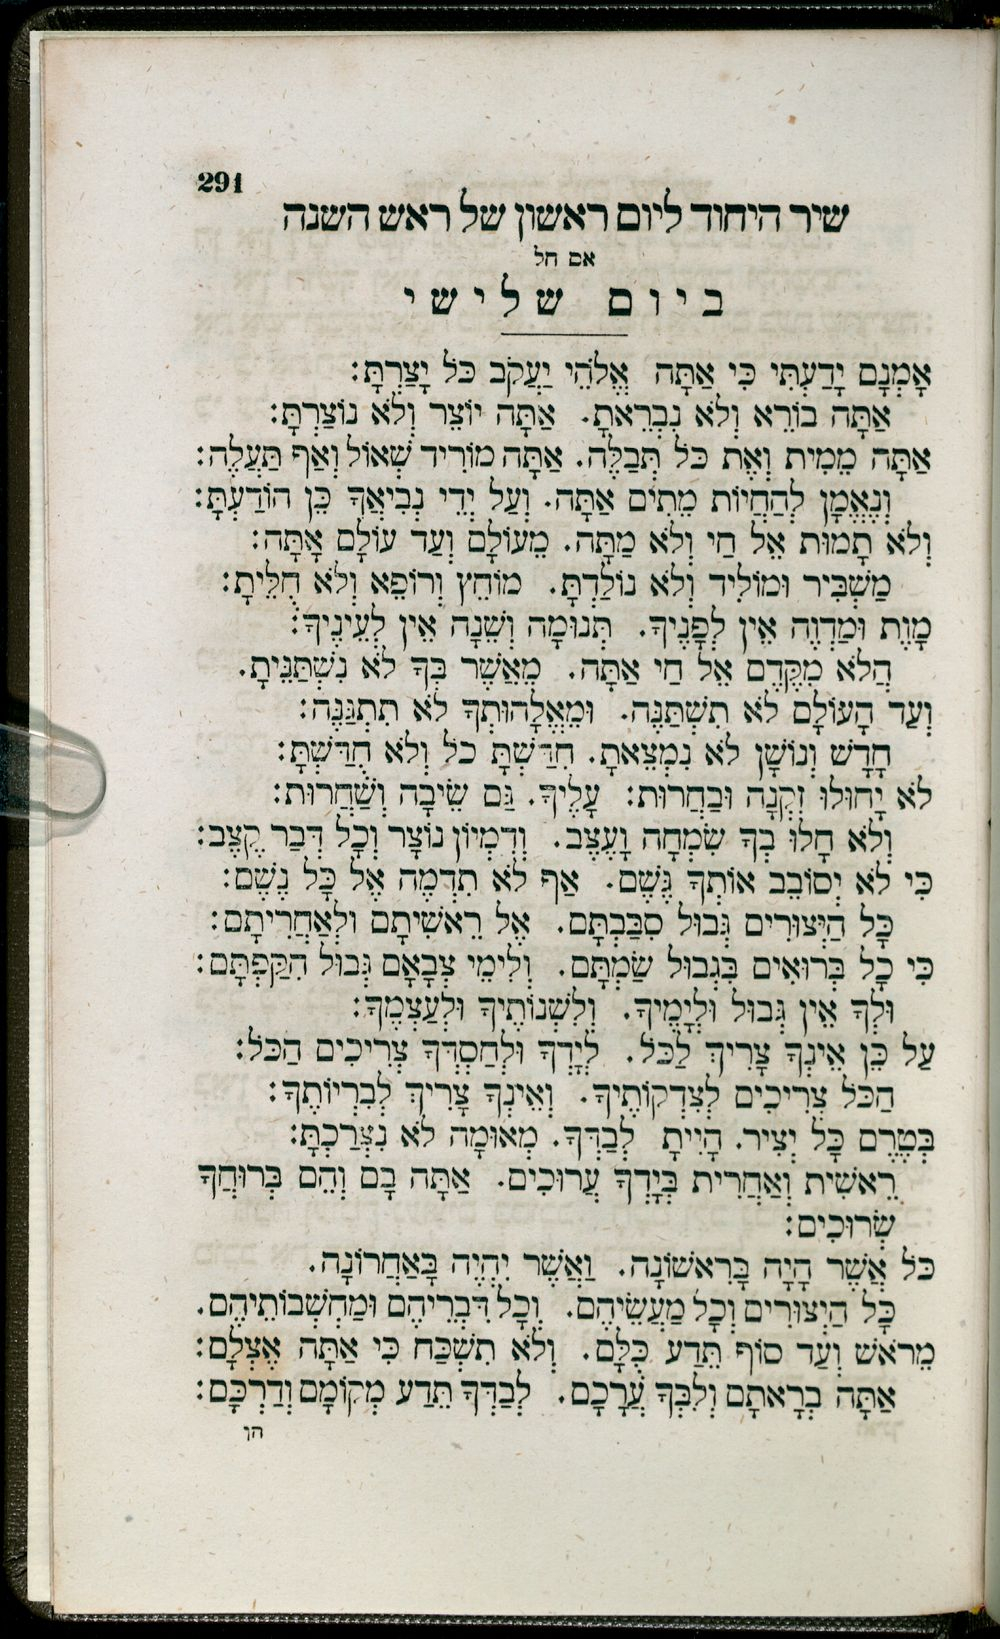 291
שיר היחוד ליום ראשון של ראש השנה
אם חל
ביום שלישי
אָמְנָם יָדַעְתִּי כִּי אַתָּה אֱלֹהֵי יַעֲקֹב כֹּל יָצַרְתָּ:
אַתָּה בוֹרֵא וְלֹא נִבְרֵאתָ. אַתָּה יוֹצֵר וְלֹא נוֹצַרְתָּ:
אַתָּה מֵמִית וְאֶת כֹּל תְּבַלֶּה. אַתָּה מוֹרִיד שְׁאוֹל וְאַף תַּעֲלֶה:
וְנֶאֱמָן לְהַחֲיוֹת מֵתִים אַתָּה. וְעַל יְדֵי נְבִיאֲךָ כֵּן הוֹדַעְתָּ:
וְלֹא תָמוּת אֵל חַי וְלֹא מַתָּה. מֵעוֹלָם וְעַד עוֹלָם אָתָּה:
מַשְׁבִּיר וּמוֹלִיד וְלֹא נוֹלַדְתָּ. מוֹחֵץ וְרוֹפֵא וְלֹא חֻלֵּיתָ:
מָוֶת וּמַדְוֶה אֵין לְפָנֶיךָ. תְּנוּמָה וְשֵׁנָה אֵין לְעֵינֶיךָ:
הֲלֹא מִקֶּדֶם אֵל חַי אַתָּה. מֵאֲשֶׁר בְּךָ לֹא נִשְׁתַּנֵּיתָ.
וְעַד הָעוֹלָם לֹא תִשְׁתַּנֶּה. וּמֵאֱלָהוּתְךָ לֹא תִתְגַּנֶּה:
חָדָשׁ וְנוֹשָׁן לֹא נִמְצֵאתָ. חִדַּשְׁתָּ כֹל וְלֹא חֻדַּשְׁתָּ:
לֹא יָחוּלוּ זִקְנָה וּבַחֲרוּת: עָלֶיךָ. גַּם שֵׂיבָה וְשַׁחֲרוּת:
וְלֹא חָלוּ בְךָ שִׂמְחָה וָעֶצֶב. וְדִמְיוֹן נוֹצָר וְכָל דְּבַר קֶצֶב:
כִּי לֹא יְסוֹבֵב אוֹתְךָ גֶּשֶׁם. אַף לֹא תִדְמֶה אֶל כָּל נֶשֶׁם:
כָּל הַיְצוּרִים גְּבוּל סִבַּבְתָּם. אֶל רֵאשִׁיתָם וּלְאַחֲרִיתָם:
כִּי כָל בְּרוּאִים בִּגְבוּל שַׂמְתָּם. וְלִימֵי צְבָאָם גְּבוּל הִקַּפְתָּם:
וּלְךָ אֵין גְּבוּל וּלְיָמֶיךָ. וְלִשְׁנוֹתֶיךָ וּלְעַצְמֶךָ:
עַל כֵּן אֵינְךָ צָרִיךְ לַכֹּל. לְיָדְךָ וּלְחַסְדְּךָ צְרִיכִים הַכֹּל:
הַכֹּל צְרִיכִים לְצִדְקוֹתֶיךָ. וְאֵינְךָ צָרִיךְ לִבְרִיּוֹתֶךָ:
בְּטֶרֶם כָּל יְצִיר. הָיִיתָ לְבַדְּךָ. מְאוּמָה לֹא נִצְרַכְתָּ:
רֵאשִׁית וְאַחֲרִית בְּיָדְךָ עֲרוּכִים. אַתָּה בָם וְהֵם בְּרוּחֲךָ
שְׂרוּכִים:
כֹּל אֲשֶׁר הָיָה בָּרִאשׁוֹנָה. וַאֲשֶׁר יִהְיֶה בָּאַחֲרוֹנָה.
כָּל הַיְצוּרִים וְכָל מַעֲשֵׂיהֶם. וְכָל דִּבְרֵיהֶם וּמַחְשְׁבוֹתֵיהֶם.
מֵרֹאשׁ וְעַד סוֹף תֵּדַע כֻּלָּם. וְלֹא תִשְׁכַּח כִּי אַתָּה אֶצְלָם:
אַתָּה בְרָאתָם וְלִבְּךָ עֲרָכָם. לְבַדְּךָ תֵּדַע מְקוֹמָם וְדַרְכָּם:
הן